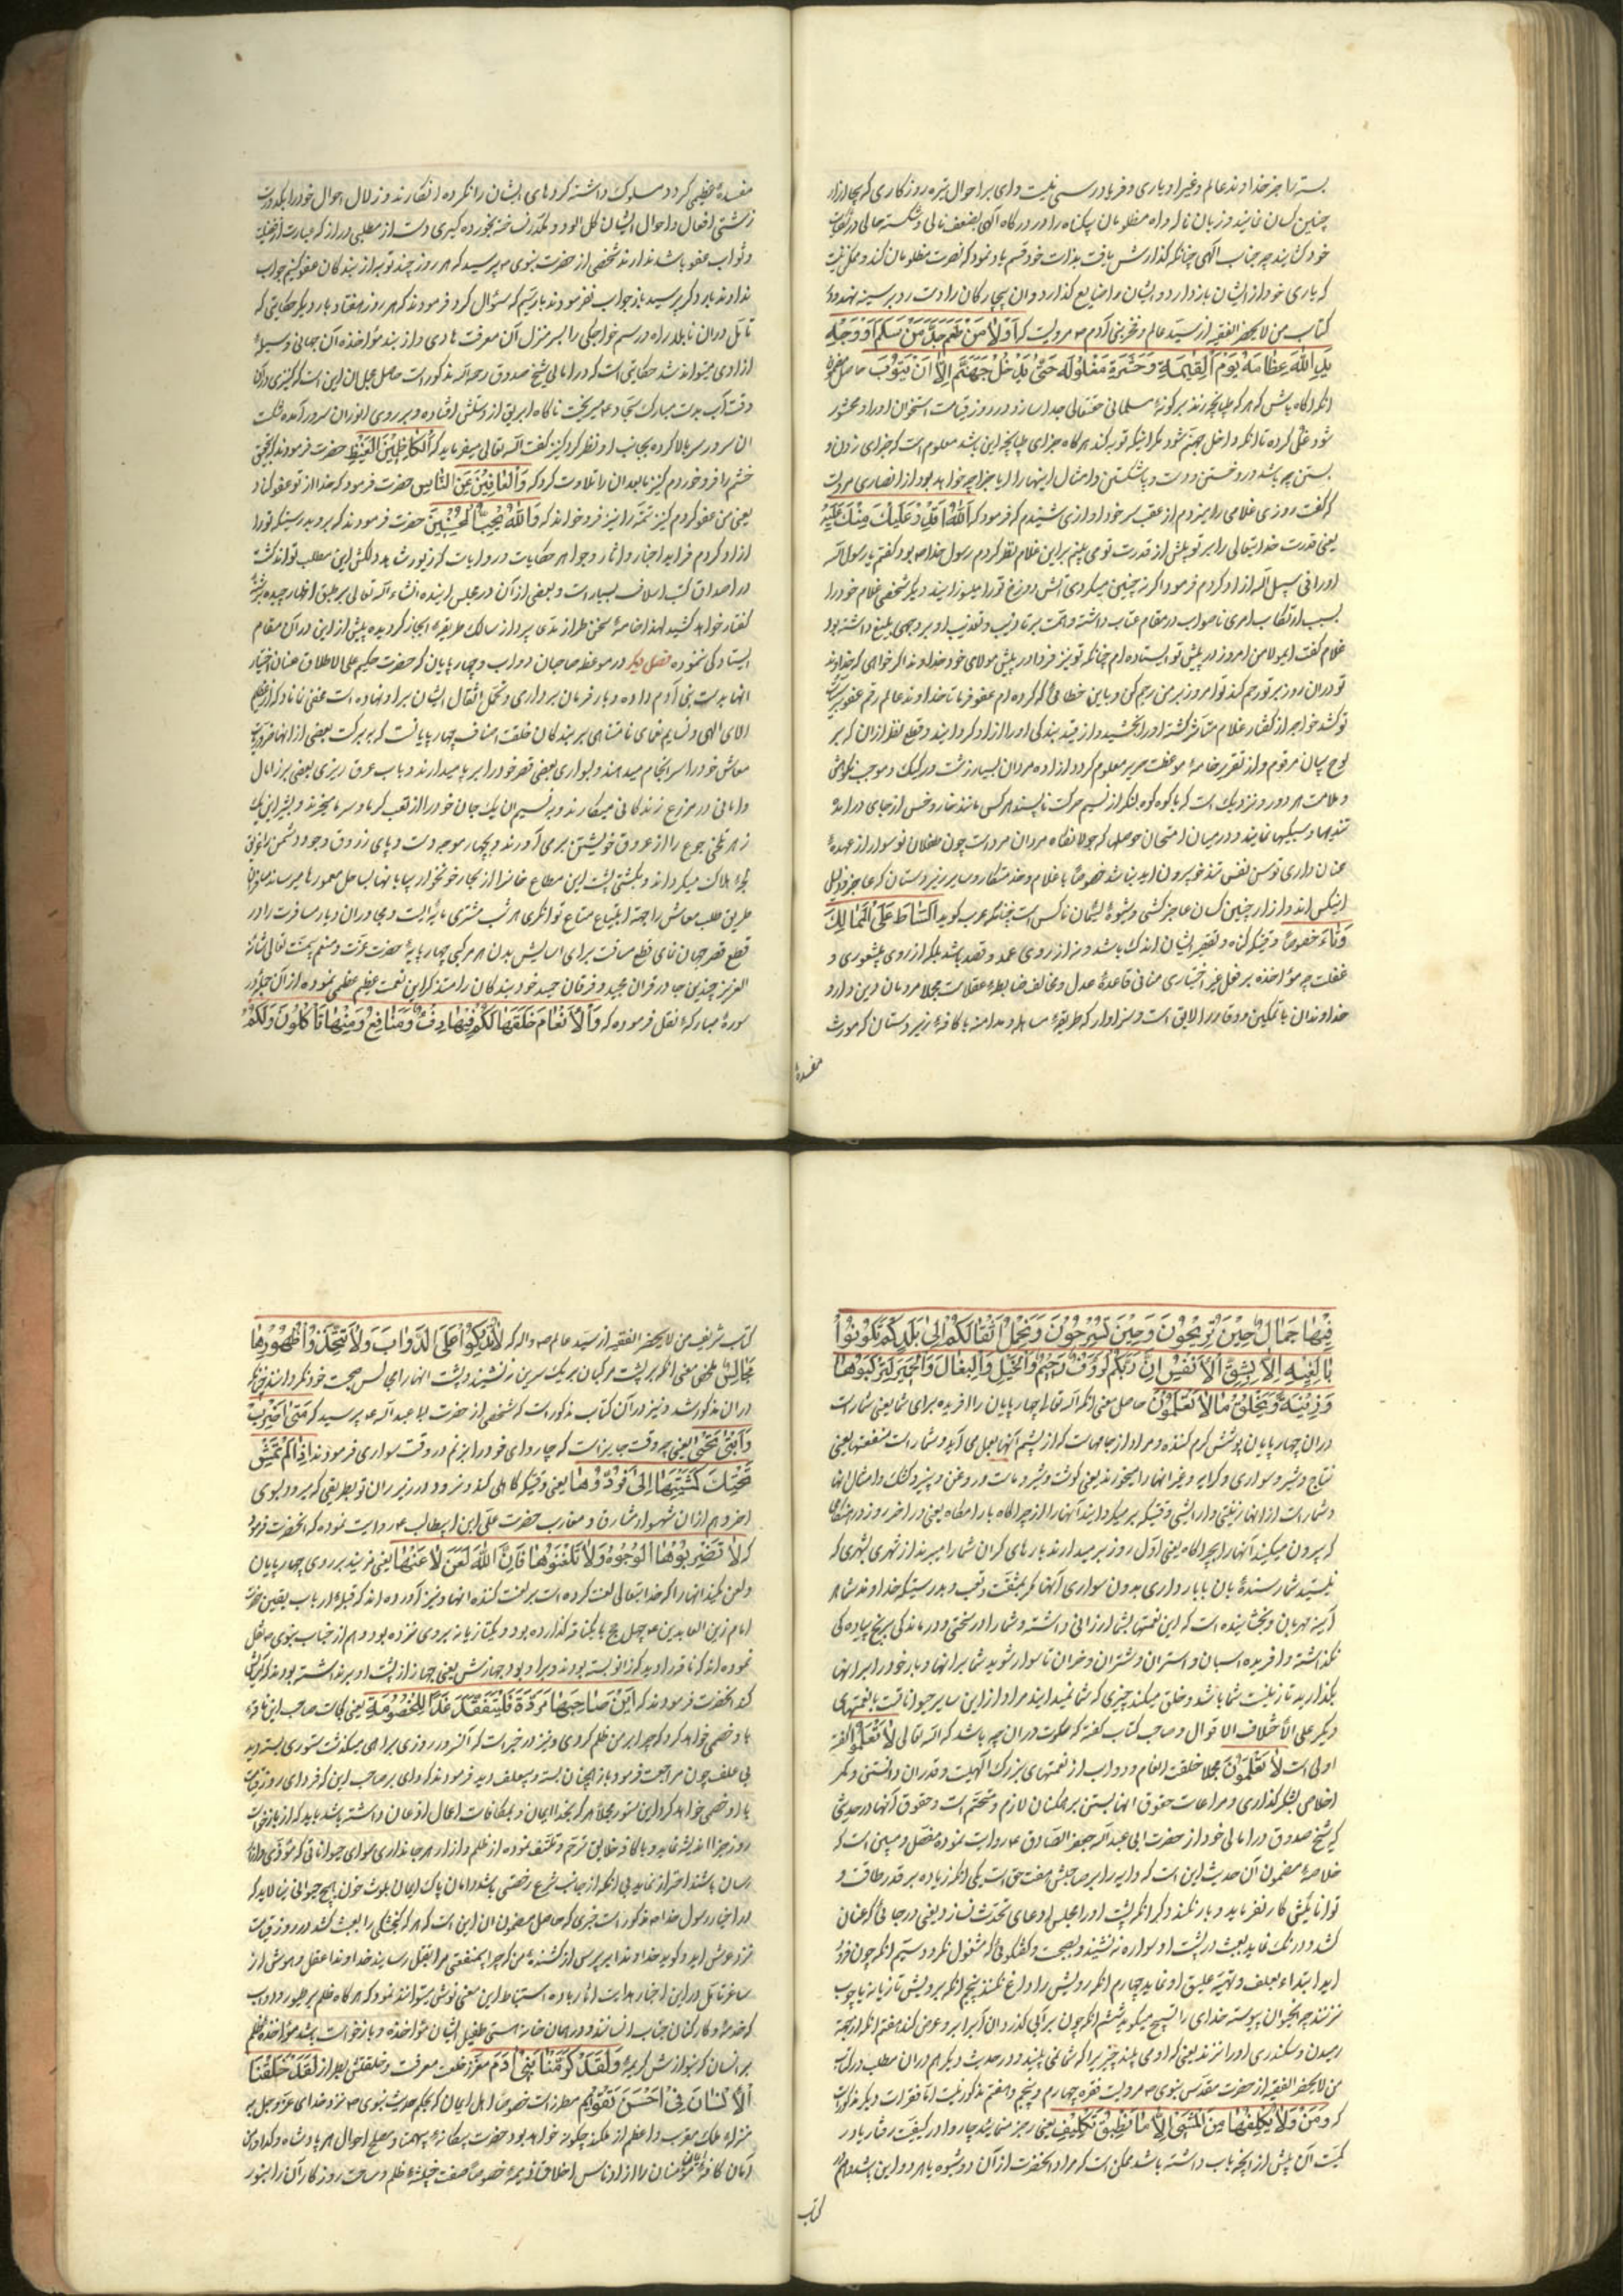 بسته را جز خداوند عالم و غیر او یاری و فریادرسی نیست وای بر احوال تیره روزکاری که بجا ازار
چنین کسان نمایند و زبان ناله و اه مظلومان بیکناه را در درکاه الهی بضعف نالی و شکسته حالی در
خود کشایند چه جناب الهی چنانکه کذارش یافت بذات خود قسم یاد نموده که نصرت مظلومان کند و ممکن نیست
که یاری خود از ایشان باز دارد و ایشان را ضایع کذارد و ان بیچارکان را دست رد بر سینه نهد و در
کتاب من لا یحضر الفقیه از سید عالم و فخر بنی آدم ص مرویست که اَوْلاٰ مَنْ لَطَمَ خَدَّ مَنْ سَلَمَ اَوْ وَجْهِهِ
اللّٰهُ عِظَامَهُ یَوْمَ الْقِیٰمَةِ وَحَشَرَهُ مَغْلُولَه حَتّٰی یَدْخُلَ جَهَنَّمَ اِلاّٰ اَنْ یَتُوْبَ حاصل
انکه اکاه باش که هر که طپانچه زند بر کونهٔ مسلمانی حقتعالی جدا سازد در روز قیامت استخوان او را و محشور
شود غل کرده تا انکه داخل جهنم شود مکر اینکه توبه کند هرکاه جزای طپانچه این باشد معلوم است که جزای زدن و
بستن چه باشد در وختن و دست و پا شکستن و امثال اینها را ایا جزا چه خواهد بود از انصاری مرویست
که کفت روزی غلامی را میزدم از عقب سر خود اوازی شنیدم که فرمود که اَللّٰهُ اَقْدَرُ عَلَیْكَ مِنْكَ عَلَیْهِ
یعنی قدرت خدایتعالی را بر تو بیش از قدرت تو می بینم بر این غلام نظر کردم رسول خدا ص بود کفتم یا رسول الله
او را فی سبیل الله ازاد کردم فرمود اکر نه چنین میکردی آتش دوزخ تو را میسوزانید و دیکر شخصی غلام خود را
بسبب ارتکاب امری ناصواب در مقام عتاب داشته و همت بر تادیب و تعذیب او بر وجهی بلیغ داشته بود
غلام کفت ای مولا من امروز در پیش تو ایستاده ام چنانکه تو نیز فردا در پیش مولای خود خداوند اکر خواهی که خداوند
تو در ان روز بر تو رحم کند تو امروز بر من رحم کن و باین خطائی که کرده ام عفو فرما تا خداوند عالم رقم عفو بر
تو کشد خواجه از کفتار غلام متاثر کشته او را بخشید و از قید بندکی او را ازاد کردانید و قطع نظر از ان که بر
لوح بیان مرقوم و از تقریر خامهٔ موعظت صریر معلوم کردد ازاده مردان بسیار زشت و رکیک و موجب نکوهش
و ملامت هر دور و نزدیک است که با کوه کوه لنکر از نسیم حرکت ناپسند هر کس مانند خار و خس از جای در امده
تندیها و سبکیها نمایند و در میدان امتحان حوصله که جولانکاه مردان مرد است چون طفلان نو سوار از عهدهٔ
عنان داری توسن نفس تندخو بیرون امد نباشد خصوصا با غلام و خدمتکار و سایر زیردستان که عاجز و ذلیل
اینکس اند و ازار چنین کسان عاجز کشی و شیوهٔ لئیمان ناکس است چنانکه عرب کوید اَلتَّسَاطُ عَلَی الْمَمَالِیكِ
دَنَاءَ خصوصا وقتیکه کناه و تقصیر ایشان اندک باشد و نه از روی عمد و قصد باشد بلکه از روی بیشعوری و
غفلت چه مواخذه بر فعل غیر اختیاری منافی قاعدهٔ عدل و مخالف ضابطهٔ عقلاست مجلا مردمان دین دار و
خداوندان با تمکین و وقار را لایق است و سزاوار که طریقهٔ مساهله و مدامنه با کافهٔ زیردستان که مورث
مفسدهٔ
مفسدهٔ عظیمی کردد مسلوک داشته کردهای ایشان را نکرده انکارند و زلال احوال خود را بکدورت
زشتی افعال و احوال ایشان کل الود و مکدر نساخته بخورده کیری دست از مطلبی دراز که عبارت از فضیلت
و ثواب عفو باشد ندارند شخصی از حضرت نبوی ص پرسید که هر روز چند نوبه از بندکان عفو کنیم جواب
نداوند بار دکر پرسید باز جواب نفرمودند بار سیم که سؤال کرد فرمودند که هر روز هفتاد بار و دیکر حکایتی که
تامل در ان نابلد راه و رسم خواجکی را بسر منزل آن معرفت هادی و از بند مؤاخذه آن جهانی وسیلهٔ
ازادی میتواند شد حکایتی است که در امالی شیخ صدوق رحمه الله مذکور است حاصل مجمل ان این است که کنیزی در
وقت آب بدست مبارک سجاد ع میریخت ناکاه ابریق از دستش افتاده و بر روی انور ان سرور آمده شکست
ان سرور سر بالا کرده بجانب او نظر کرد کنیز کفت الله تعالی میفرماید که اَلْکَاظِمِیْنَ الْغَیْظَ حضرت فرمودند
خشم را فرو خوردم کنیز ما بعد ان را تلاوت کرد که وَالْعَافِیْنَ عَنِ النَّاسِ حضرت فرمود که خدا از تو عفو کناد
یعنی من عفو کردم کنیز تتمه را نیز فرو خواند که وَاللّٰهُ یُحِبُّ الْمُحْسِنِیْنَ حضرت فرمودند که برو بدرستیکه تو را
ازاد کردم فراید اخبار و اثار و جواهر حکایات و روایات که زیور شاهد دلکش این مطلب تواند کشت
در اصداف کتب اسلاف بسیار است و بعضی از آن در مجلس اینده انشاءالله تعالی بر طبق اظهار چیده برشتهٔ
کفتار خواهد کشید لهذا خامهٔ سخن طراز مدعا پرداز سالک طریقهٔ ایجاز کردیده بیش از این در آن مقام
ایستادکی ننموده فصل دیکر در موعظه صاحبان دواب و چهارپایان که حضرت حکیم علی الاطلاق عنان اختیار
انها بدست بنی آدم داده و بار فرمان برداری و تحمل اثقال ایشان بر او نهاده است مخفی نماناد که از اعظم
الای الهی و نسایم نعمای نامتناهی بر بندکان خلقت اصناف چهارپایانست که ببرکت بعضی از انها
معاش خود را سرانجام میدهند و بیاری بعضی قصر خود را بر پا میدارند و باب عرق ریزی بعضی بر زامال
وامانی در مزرع زندکانی میکارند و بنسیم ان یک جان خود را از تعب کرما و سرما میخرند و بشیر این یک
زهر تلخی جوع را از عروق خویشتن بر می آورند و بچهار موجه دست و پای زورق وجود دشمن
لجهٔ هلاک میکرداند و بکشتی پشت این مطاع خانرا از بحار خونخوار بیابانها بساحل معمورها میرساند
طریق طلب معاش را جهت ابتیاع متاع توانکری هر شب مشتری مایه ایست و مجاوران و دیار مسافرت را در
قطع قصر جهان نمای قطع مسافت برای اسایش بدن هر مرکبی چهار پایهٔ حضرت عزت و منعم بیمنت تعالی شانه
العزیز چندین جا در قران مجید و فرقان حمید خود بندکان را متذکر این نعمت عظیم عظمی نموده از آن جمله در
سورهٔ مبارکهٔ نقل فرموده که وَالْاَنْعَامَ خَلَقَهَا لَکُمْ فِیْهَا دِفْءٌ وَمَنَافِعُ وَمِنْهَا تَأْکُلُوْنَ وَلَکُمْ
فِیْهَا جَمَالٌ حِیْنَ تُرِیْحُوْنَ وَحِیْنَ تَسْرَحُوْنَ وَتَحْمِلُ اَثْقَالَکُمْ اِلٰی بَلَدٍ لَمْ تَکُوْنُوْا
بَالِغِیْهِ اِلاّٰ بِشِقِّ الْاَنْفُسِ اِنَّ رَبَّکُمْ لَرَؤُفٌ رَحِیْمٌ وَالْخَیْلَ وَالْبِغَالَ وَالْحَمِیْرَ لِتَرْکَبُوْهَا
وَزِیْنَةً وَیَخْلُقُ مَا لَا تَعْلَمُوْنَ حاصل معنی انکه الله تعالی چهارپایان را افریده برای شما یعنی شما راست
در ان چهارپایان پوشش کرم کننده و مراد از جامهاست که از پشم آنها بعمل می آید و شما راست منفعتها یعنی
نتاج و شیر و سواری و کرایه و غیر انها را میخورند یعنی کوشت و شیر و ماست و روغن و پنیر و کشک و امثال انها
و شما راست از انها زینتی و ارایشی وقتیکه بر میکردانید آنها را از چراکاه بارامکاه یعنی در اخر روز و در هنکامی
که بیرون میکنید آنها را بچراکاه یعنی اول روز و بر میدارند بارهای کران شما را میبرند از شهری بشهری که
نیستید شما رسندهٔ بان با بار داری بدون سواری آنها مکر بمشقت و تعب و بدرستیکه خداوند شما هر
آینه مهربان و بخشاینده است که این نعمتها بشما ارزانی داشته و شما را در سختی و درماندکی برنج پیاده کی
نکذاشته و افریده اسبان و استران و شتران و خران تا سوار شوید شما بر انها و بار خود را بر انها
بکذارید تا زینت شما باشد و خلق میکند چیزی که شما نمیدانید مراد از این سایر حیواناتست یا نعمتهای
دیکر علی اختلاف الاقوال و صاحب کتاب کفته که سکوت در ان به باشد که الله تعالی لَا تَعْلَمُوْا کفته
اولی است لَا تَعْلَمُوْنَ مجلا خلقت انعام و دواب از نعمتهای بزرک الهیست و قدر ان دانستن و کمر
اخلاص بشکر کذاری و مراعات حقوق انها بستن بر همکنان لازم و متحتم است و حقوق آنها در حدیثی
که شیخ صدوق در امالی خود از حضرت ابی عبدالله جعفر الصادق ع روایت نموده مفصل و مبین است که
خلاصهٔ مضمون آن حدیث این است که دابه را بر صاحبش هفت حق است یکی انکه زیاده بر قدر طاقت و
توانائیش کار نفرماید و بار نکند دوم انکه پشت او را مجلس ادعای تحدث نسازد یعنی در جائی که عنان
کشد و درنک نماید بعبث در پشت او سواره ننشیند و بصحبت و کفتکوئی که مشغول نکردد و سیم انکه چون فرود
اید ابتداء بعلف و تهیهٔ علیق او نماید چهارم انکه رویش را داغ نکند پنجم انکه بر رویش تازیانه یا چوب
نزند چه انحیوان پیوسته خدای را تسبیح میکوید ششم انکه چون بر آبی کذرد ان را بر او عرض کند هفتم انکه از جهة
رمیدن و سکندری او را نزند یعنی که او می بیند چیزی را که شما نمی بینید و در حدیث دیکر هم در ان مطلب در کتاب
من لا یحضر الفقیه از حضرت مقدس نبوی ص مرویست فقره چهارم و پنجم و هفتم مذکور نیست اما فقرات دیکر مذکور است
که وَمَنْ وَلَا یُکَلِّفُهَا مِنَ الْمَشْیِ اِلاّٰ مَا تُطِیْقُ تَکْلِیْفِ یعنی زجر ننمایند چاروا در کیفیت رفتار یا در
کمیت آن بیش از آنچه باب داشته باشد ممکن است که مراد انحضرت از آن دو شیوه یا هر دو این باشد و هم در
کتاب
کتاب شریف من لا یحضر الفقیه از سید عالم ص و اله که لَا تَتَّکِئُوْا عَلَی الدَّوَابِ وَلَا تَتَّخِذُوْا ظُهُوْرَهَا
مَجَالِسَ ظهر معنی انکه بر پشت مرکبان بر یک سرین ننشیند و پشت انها را مجالس صحبت خود نکردانند چنانکه
در ان مذکور شد و نیز در آن کتاب مذکور است که شخصی از حضرت ابا عبدالله ع پرسید که مَتٰی اَضْرِبُ
دَابَّتِیْ تَحْتِیْ یعنی چه وقت جایز است که چاروای خود را بزنم در وقت سواری فرمودند اِذَا لَمْ تَمْشِ
تَحْتَكَ کَمَشْیِهَا اِلٰی مِذْوَدِهَا یعنی وقتیکه کاهلی کند و نرود در زیر ران تو بطریقی که میرود بسوی
اخر و هم از ان شهسوار مشارق و مغارب حضرت علی ابن ابیطالب ع روایت نموده که انحضرت فرمود
که لَا تَضْرِبُوْهَا الْوُجُوْهَ وَلَا تَلْعَنُوْهَا فَاِنَّ اللّٰهَ لَعَنَ لَاعِنَهَا یعنی مزنید بر روی چهارپایان
و لعن مکنید انها را که خدایتعالی لعنت کرده است بر لعنت کنندهٔ انها و نیز آورده اند که قبلهٔ ارباب یقین حضرت
امام زین العابدین ع چهل حج با یک ناقه کذارده بود و یکتازیانه بروی نزده بود و هم از جناب نبوی ص نقل
نموده اند که ناقه را دید که زانو بسته بودند و بر او بود جهازش یعنی جهاز از پشت او بر نداشته بودند
که انحضرت فرمودند که اَیْنَ صَاحِبُهَا مَرْوَةَ فَلْیَسْتَعِدَّ غَدًا لِلْخُصُوْمَةِ یعنی کجاست صاحب این ناقه
با او خصمی خواهد کرد که چرا بر من ظلم کردی و نیز در خبر است که آن سرور روزی براهی میکذشت ستوری بسته دید
بی علف چون مراجعت فرمود باز همچنان بسته و بیعلف دید فرمودند که وای بر صاحب این که فردای روز قیامت
با او خصمی خواهد کرد این ستور مجلا هر که بخدا ایمان و بمکافات اعمال اذعان داشته باشد باید که از بازخواست
روز جزا اندیشه نماید و با کافهٔ خلایق ترحم و تلطف نموده از ظلم و ازار هر جانداری سوای حیواناتی که موذی و اذیت
رسان باشند احتراز نماید بی انکه از جانب شرع رخصتی باشد دامان پاک ایمان بلوث خون هیچ حیوانی نیالاید که
در اخبار رسول خدا ص مذکور است خبری که حاصل مضمون ان این است که هر که کنجشکی را بعبث کشد در روز قیامت
نزد عرش اید و کوید خداوندا بپرس از کشندهٔ من که چرا بیمنفعتی مرا بقتل رسانید خداوند عقل و هوش از
ساغر تامل در این اخبار هدایت اثار بادهٔ استنباط این معنی نوش میتوانند نمود که هرکاه ظلم بر طیور و دواب
که خدمه و کارکنان جناب انسانند و در مهمان خانهٔ هستی طفیل ایشان مؤاخذه و بازخواست باشد مؤاخذه ظلم
بر انسان که بنوازش کریمهٔ وَلَقَدْ کَرَّمْنَا بَنِیْ اٰدَمَ معزز خلعت معرفت و خلقتش بطراز لَقَدْ خَلَقْنَا
الْاِنْسَانَ فِیْ اَحْسَنِ تَقْوِیْمٍ مطرز است خصوصا اهل ایمان که بحکم حدیث نبوی ص نزد خدای عزوجل بر
منزلهٔ ملک مقرب و اعظم از ملکند چکونه خواهد بود حضرت یکانهٔ بیهمتا و مصلح احوال هر پادشاه و کدا دامن
آمان کافهٔ مؤمنان را از لوث ناس اخلاق ذمیمهٔ خصوصا صفت خبیثهٔ ظلم و ساحت روزکار آن را بنور